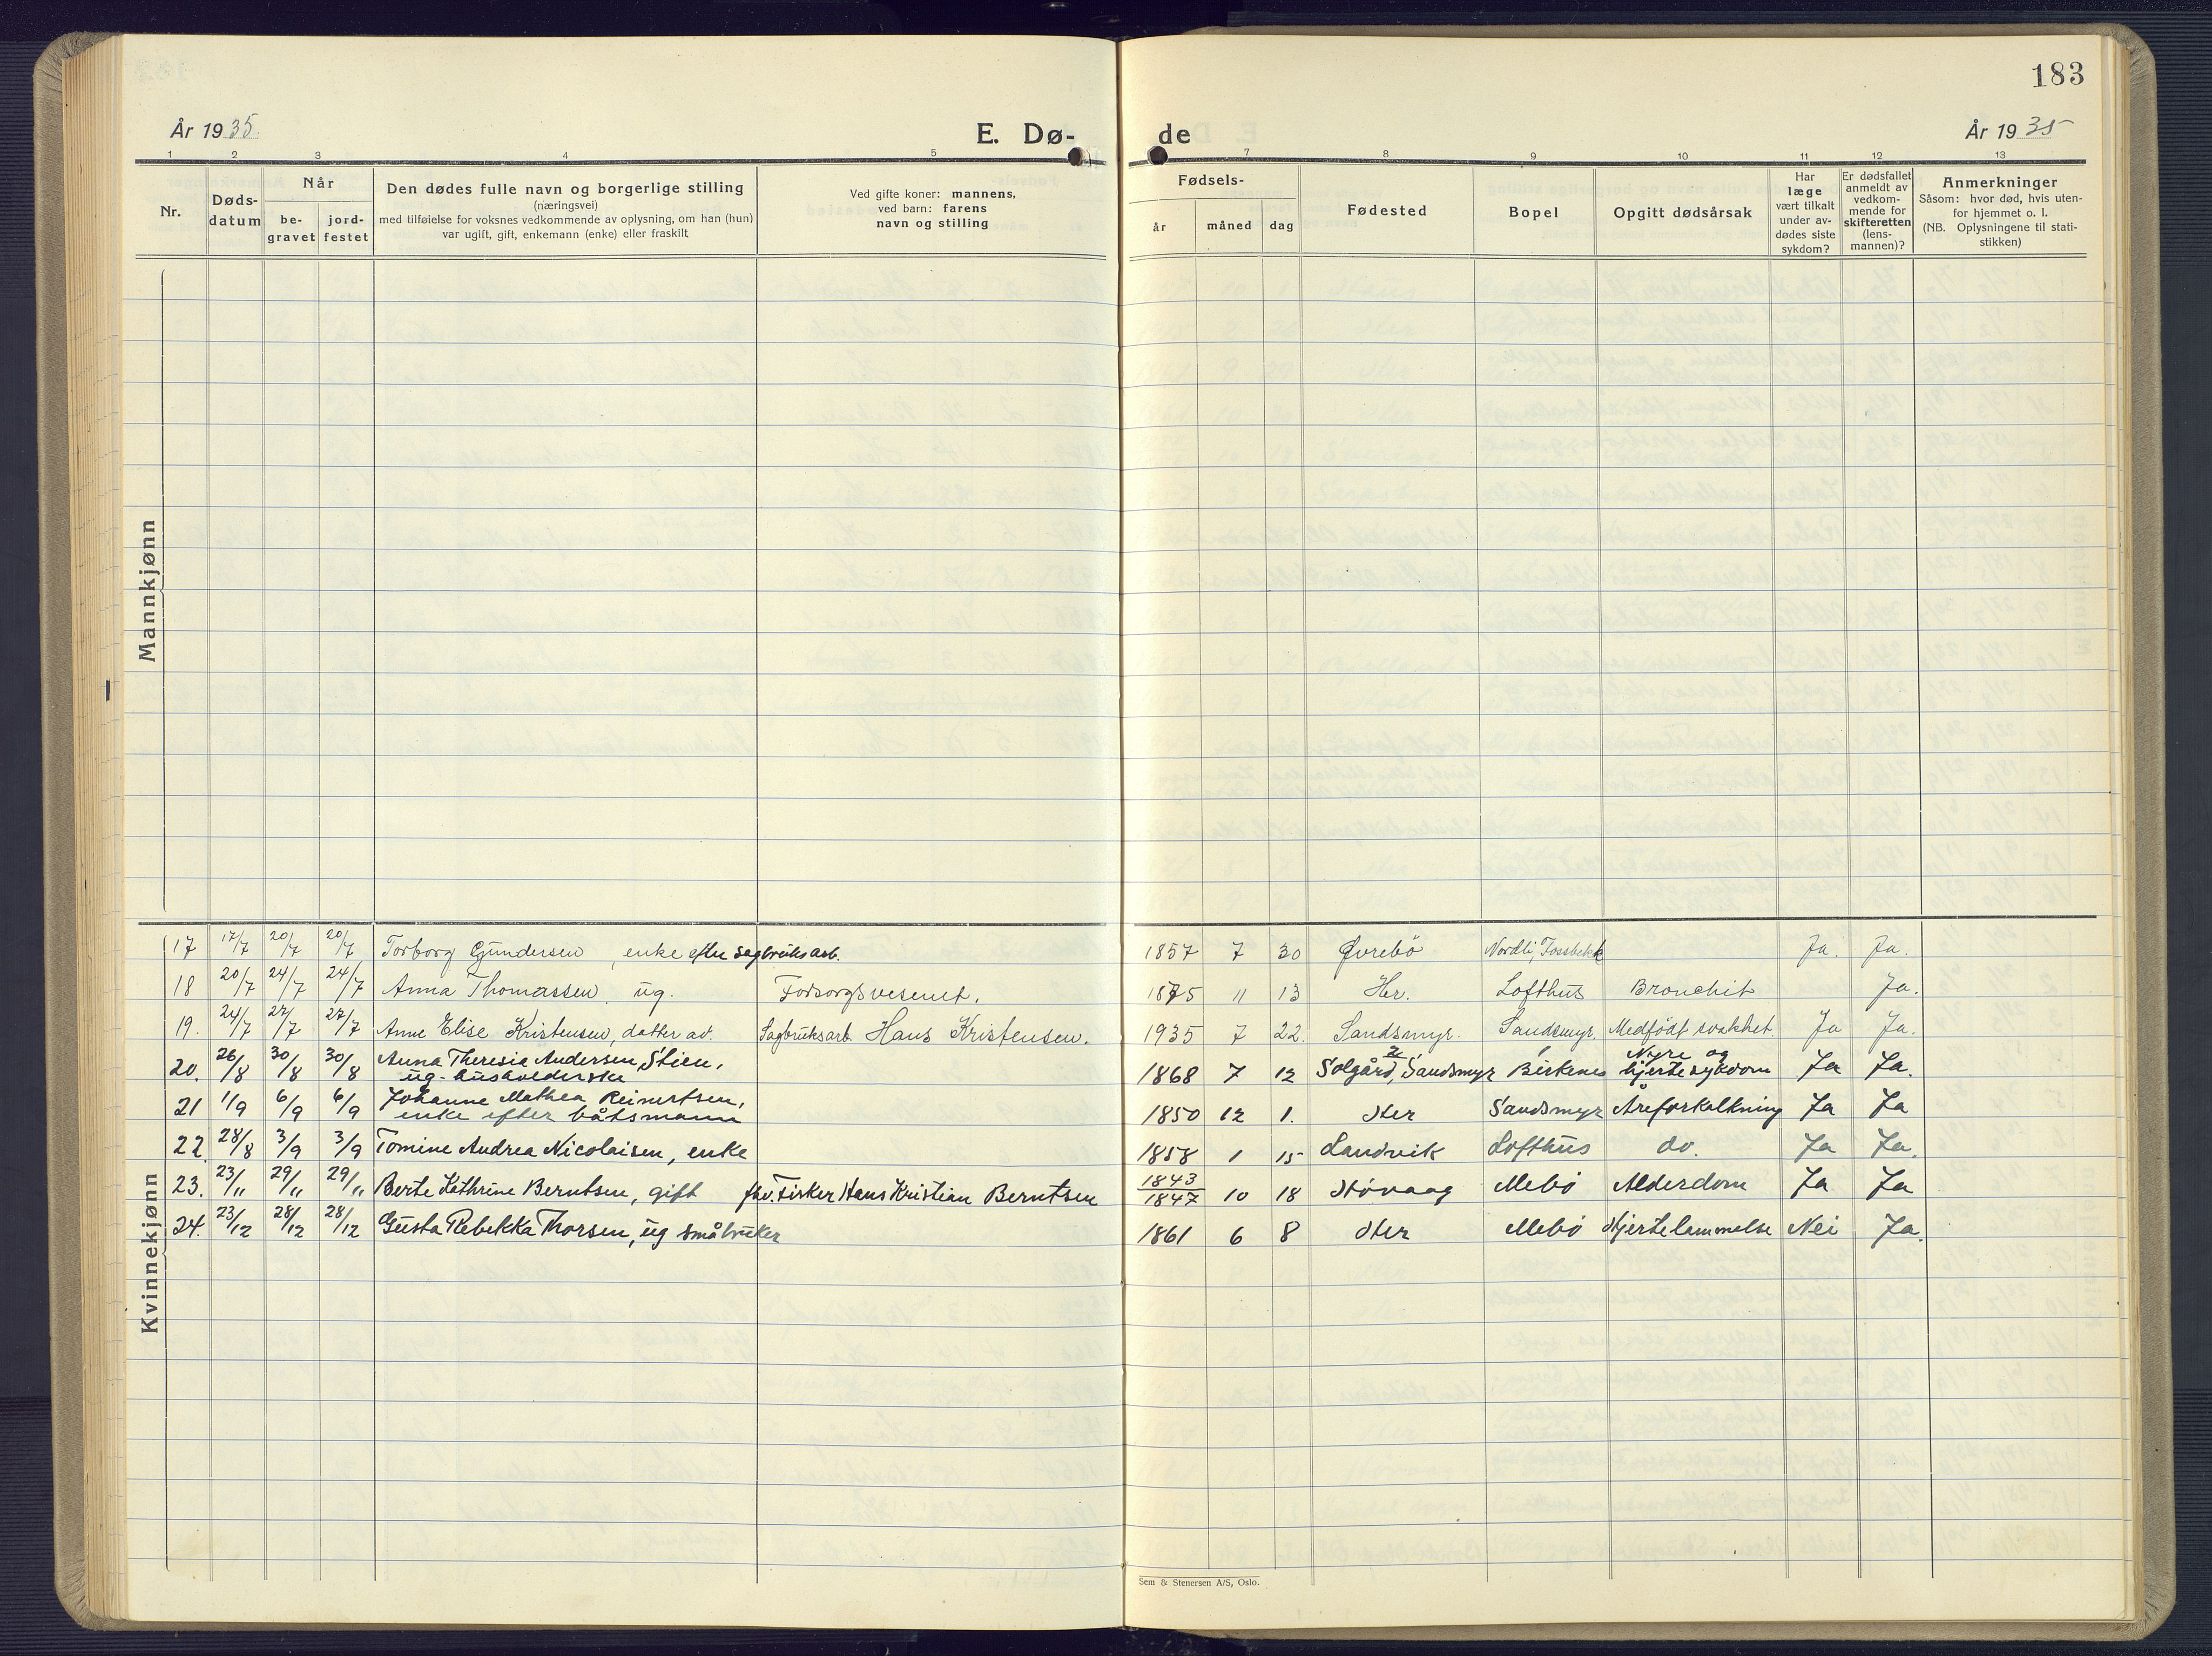 183
År 1935
E. Dø-
de
År 1935
1 2 3 4 5 7 8 9 10 11 12 13
Nr.
Døds-
datum
Når
be-
gravet
jord-
festet
Den dødes fulle navn og borgerlige stilling
(næringsvei)
med tilføielse for voksnes vedkommende av oplysning, om han (hun)
var ugift, gift, enkemann (enke) eller fraskilt
Ved gifte koner: mannens,
ved barn: farens
navn og stilling
Fødsels-
år
måned
dag
Fødested
Bopel
Opgitt dødsårsak
Har
læge
vært tilkalt
under av-
dødes siste
sykdom?
Er dødsfallet
anmeldt av
vedkom-
mende for
skifteretten
(lens-
mannen)?
Anmerkninger
Såsom: hvor død, hvis uten-
for hjemmet o. l.
(NB. Oplysningene til stati-
stikken)
Mannkjønn
Kvinnekjønn
17 17/7 20/7 20/7 Torborg Gundersen, enke efter sagbruksarb. 1857 7 30 Øvrebö Nordli, Fossbekk Ja. Ja.
18 20/7 24/7 24/7 Anna Thomassen, ug. Forsorgsvesenet. 1875 11 13 Her. Lofthus Bronchit Ja.
19. 24/7 27/7 27/7 Anne Elise Kristensen, datter av. Sagbruksarb. Hans Kristensen. 1935 7 22. Sandsmyr. Sandsmyr. Medfödt svakhet. Ja Ja.
20. 26/8 30/8 30/8 Anna Theresia Andersen, Stien,
ug. husholderske 1868 7 12 Solgård, Sandsmyr Birkenes Nyre og
hjertesykdom Ja Ja.
21 1/9 6/9 6/9 Johanne Mathea Reinertsen,
enke efter båtsmann 1850 12 1. Her Sandsmyr Åreforkalkning Ja Ja
22. 28/8 3/9 3/9 Tomine Andrea Nicolaisen, enke 1858 1 15 Landvik Lofthus do. Ja Ja.
23. 23/11 29/11 29/11 Berte Kathrine Berntsen, gift fhv. Fisker Hans Kristian Berntsen 1843
1847 10 18 Hövaag Mebö Alderdom Ja Ja
24. 23/12 28/12 28/12 Gusta Rebekka Thorsen, ug småbruker 1861 6 8 Her Mebö Hjertelammelse Nei Ja.
Sem & Stenersen A/S, Oslo.